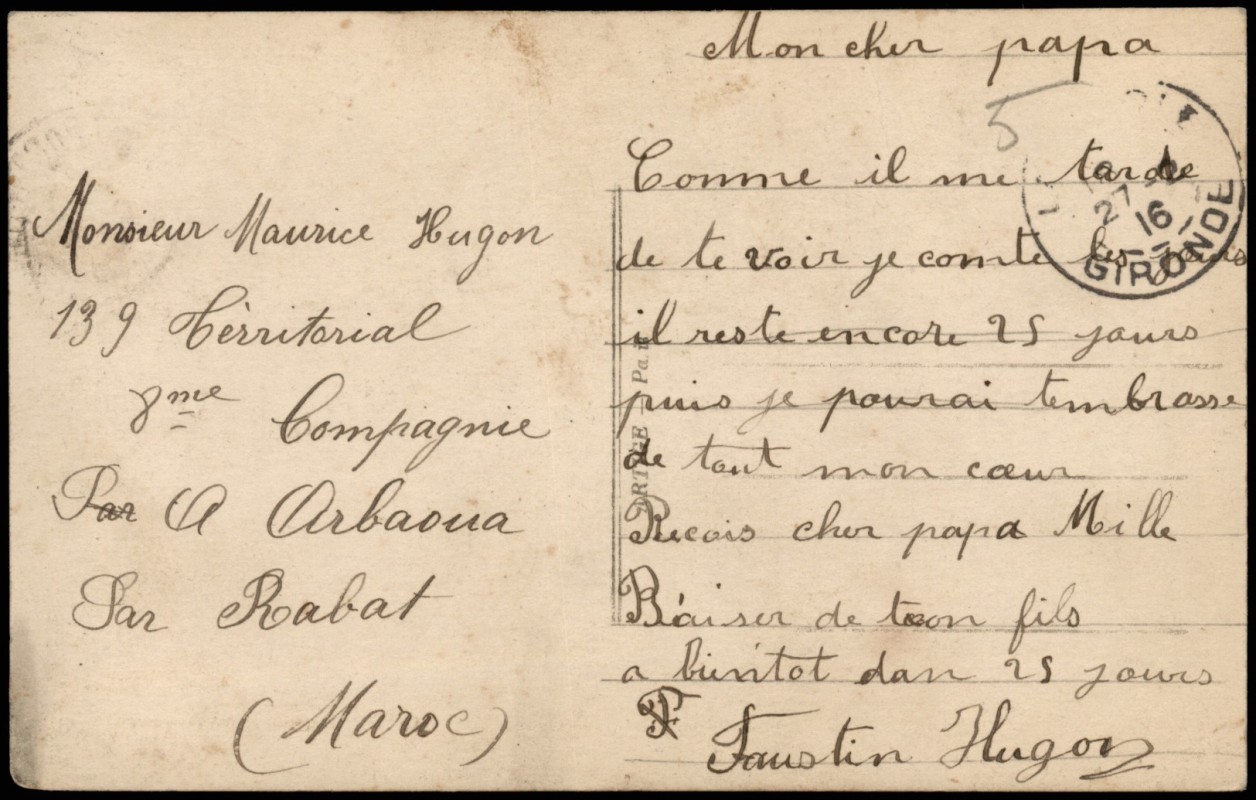 Mon cher papa
5
Comme il me tarde
de te voir je comte les jours
il reste encore 25 jours
puis je pourai tembrasse
de tout mon cœur
Recois cher papa Mille
Baiser de ton fils
a bientot dan 25 jours
F Faustin Hugon
Monsieur Maurice Hugon
139 Térritorial
8me Compagnie
Par A Arbaoua
Par Rabat
(Maroc)
27
16
GIRONDE